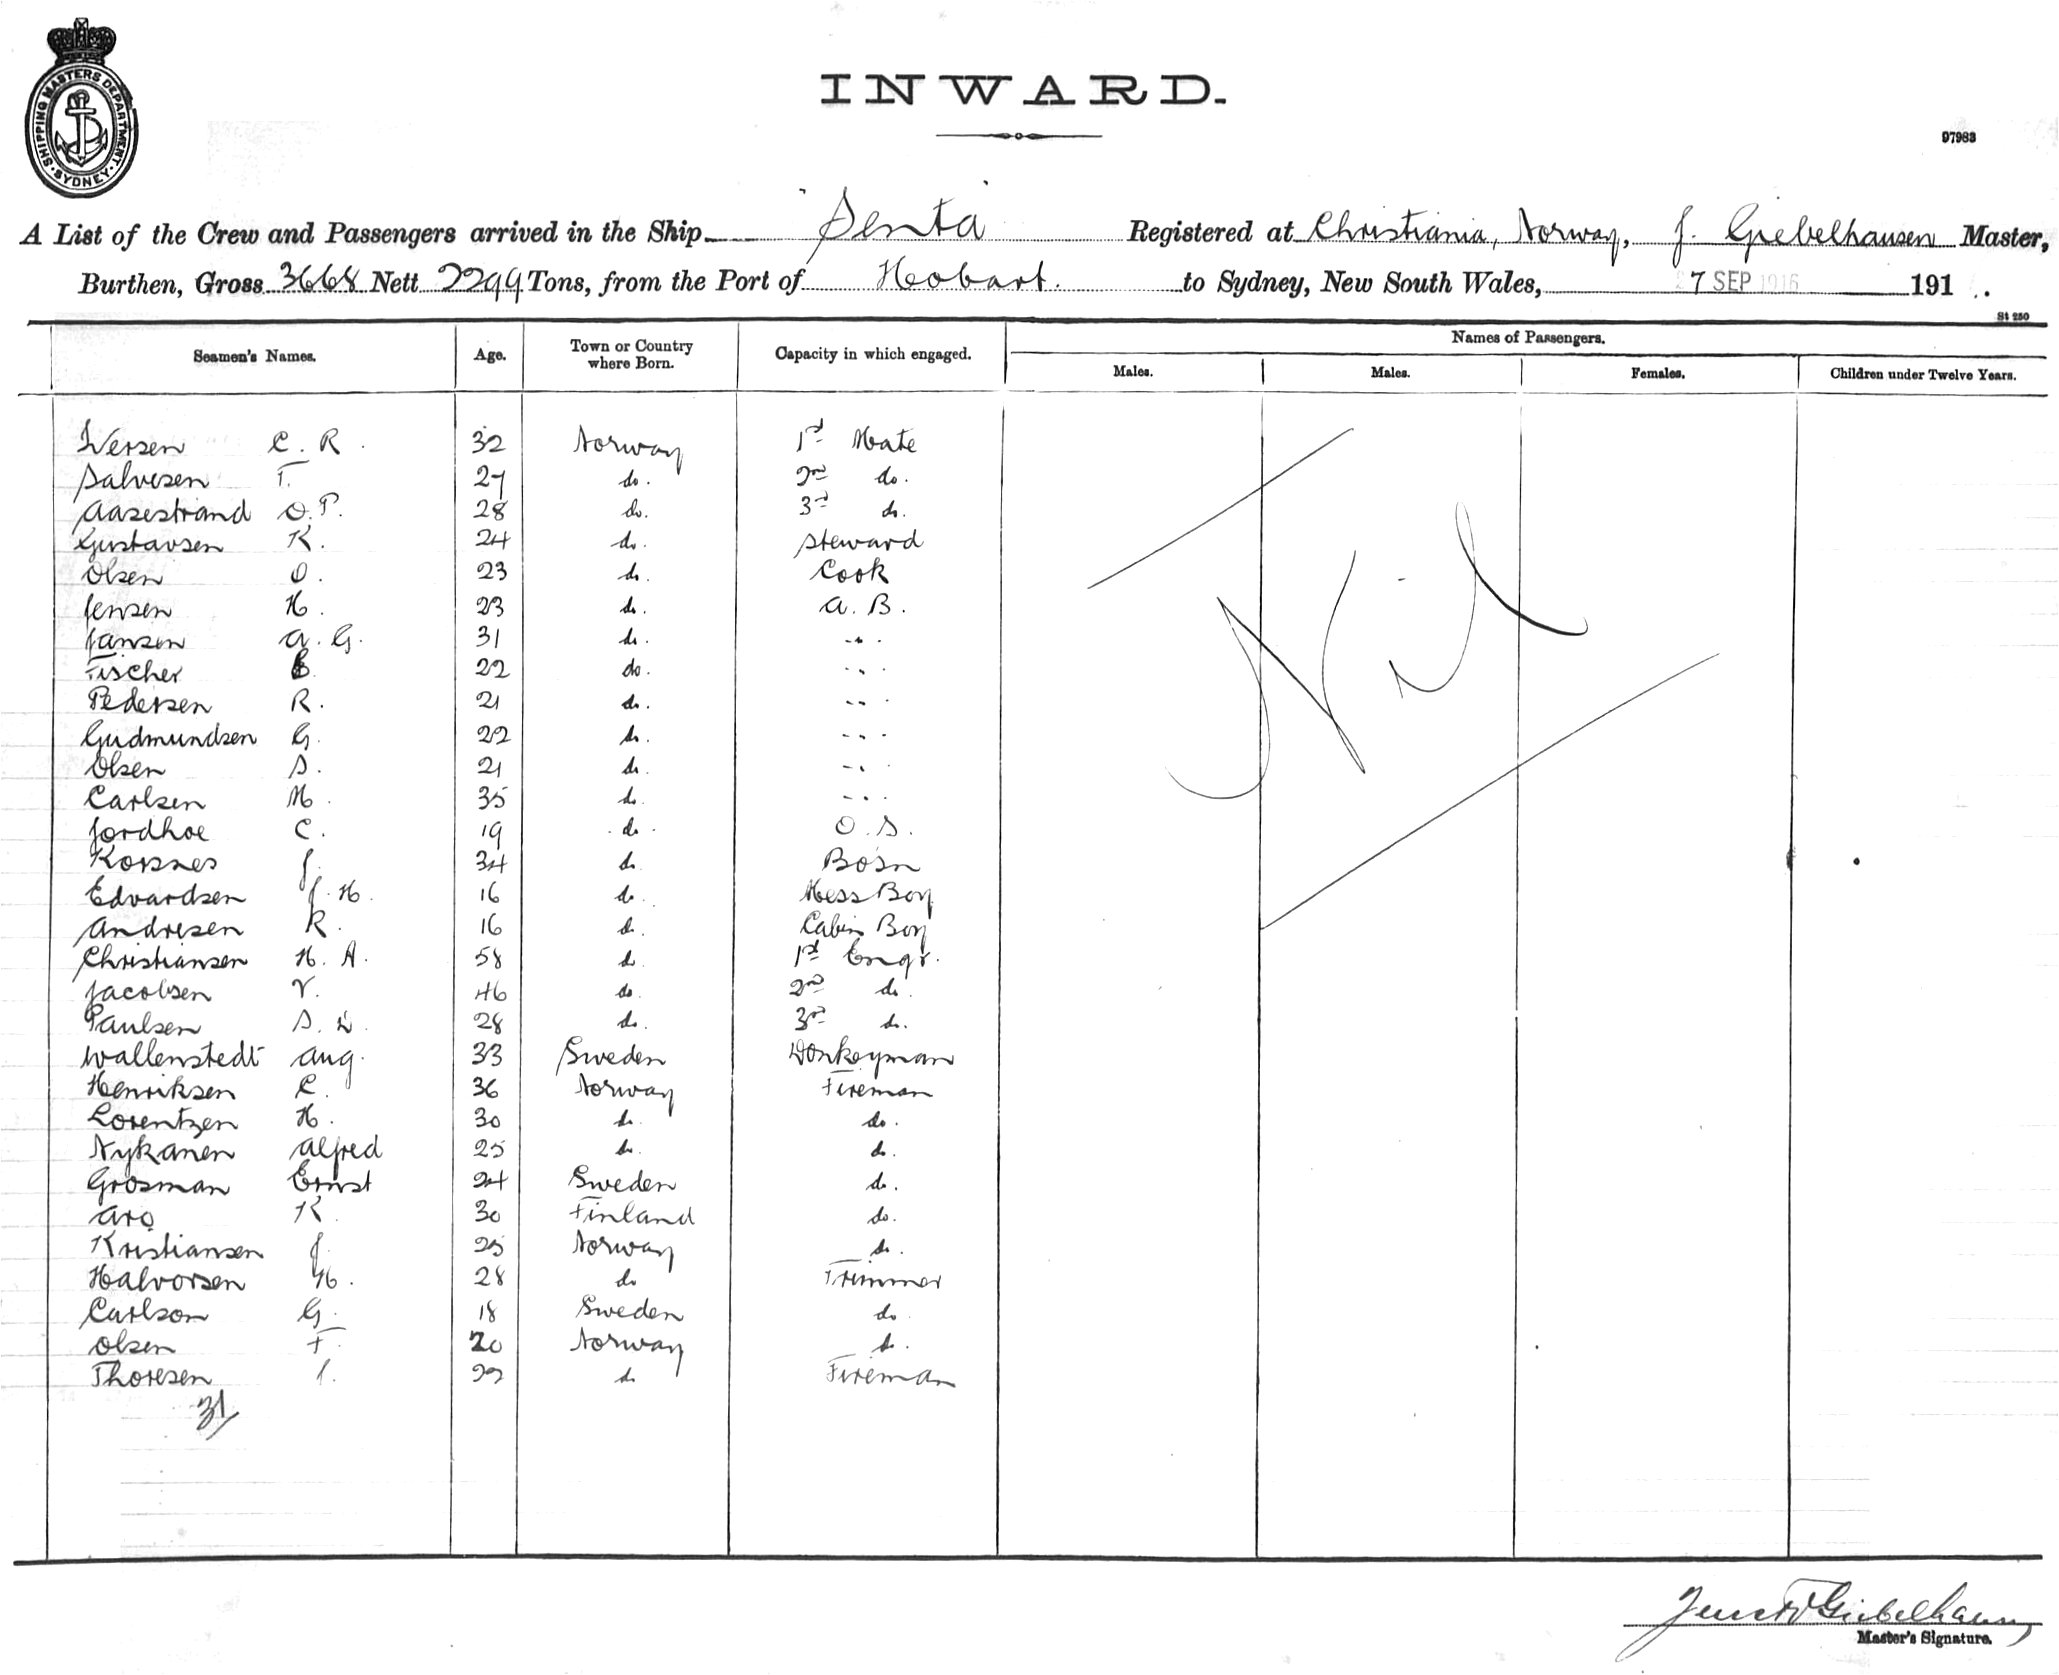 SHIPPING MASTERS DEPARTMENT · SYDNEY ·
INWARD.
97983
A List of the Crew and Passengers arrived in the Ship "Senta" Registered at Christiania, Norway, J. Giebelhausen Master,
Burthen, Gross 3668 Nett 2299 Tons, from the Port of Hobart. to Sydney, New South Wales, 7 SEP 1916 191 .
St 250
Seamen's Names. Age. Town or Country where Born. Capacity in which engaged. Names of Passengers.
Males. Males. Females. Children under Twelve Years.
Iversen C. R. 32 Norway 1st Mate
Salvesen T. 27 do. 2nd do.
Aasestrand O. P. 28 do. 3rd do.
Gustavsen K. 24 do. Steward
Olsen O. 23 do. Cook
Jensen H. 23 do. A. B.
Jansen A. G. 31 do. " "
Fischer 22 do. " "
Pedersen R. 21 do. " "
Gudmundsen G. 22 do. " "
Olsen S. 21 do. " "
Carlsen M. 35 do. " "
Jordhoe C. 19 do. O. S.
Korsnes J. 34 do Bosn
Edvardsen J. H. 16 do. Mess Boy
Andresen R. 16 do. Cabin Boy
Christiansen H. A. 58 do. 1st Engr.
Jacobsen V. 46 do. 2nd do.
Paulsen S. 28 do. 3rd do.
Wallenstedt Aug. 33 Sweden Donkeyman
Henriksen C. 36 Norway Fireman
Lorentzen H. 30 do. do.
Nykanen Alfred 25 do. do.
Grosman Ernst 24 Sweden do.
Aro K. 30 Finland do.
Kristiansen J. 25 Norway do.
Halvorsen H. 28 do Trimmer
Carlson G. 18 Sweden do
Olsen F. 20 Norway do.
Thoresen 22 do Fireman
31
Nil
Giebelhausen
Master's Signature.